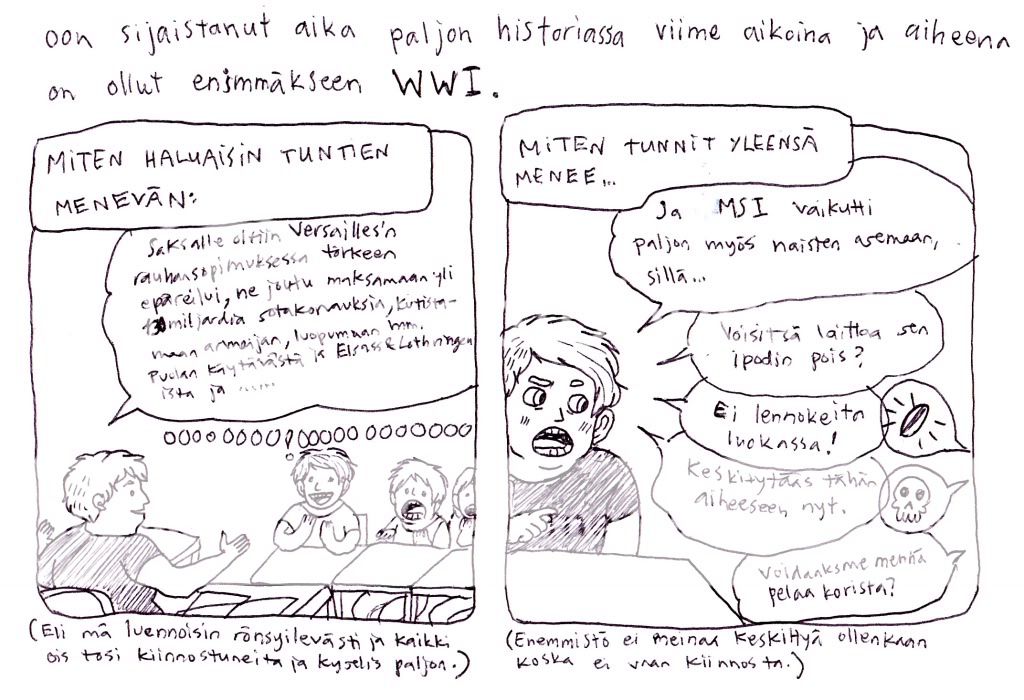 oon sijaistanut aika paljon historiassa viime aikoina ja aiheena
on ollut ensimmäkseen WWI.
MITEN HALUAISIN TUNTIEN
MENEVÄN:
Saksalle oltiin Versailles'n
rauhansopimuksessa törkeen
epäreilui, ne joutu maksamaan yli
130 miljardia sotakorvauksia, kutista-
maan armeijan, luopumaan mm.
Puolan käytävästä ja Elsass & Lothringen
ista ja .......
OOOOOOOOO!OOOOOOOOOOOO
(Eli mä luennoisin rönsyilevästi ja kaikki
ois tosi kiinnostuneita ja kyselis paljon.)
MITEN TUNNIT YLEENSÄ
MENEE...
Ja MSI vaikutti
paljon myös naisten asemaan,
sillä...
Voisitsä laittaa sen
ipodin pois?
Ei lennokeita
luokassa!
Keskitytääs tähän
aiheeseen nyt.
Voidaaksme mennä
pelaa korista?
(Enemmistö ei meinaa keskittyä ollenkaan
koska ei vaan kiinnosta.)